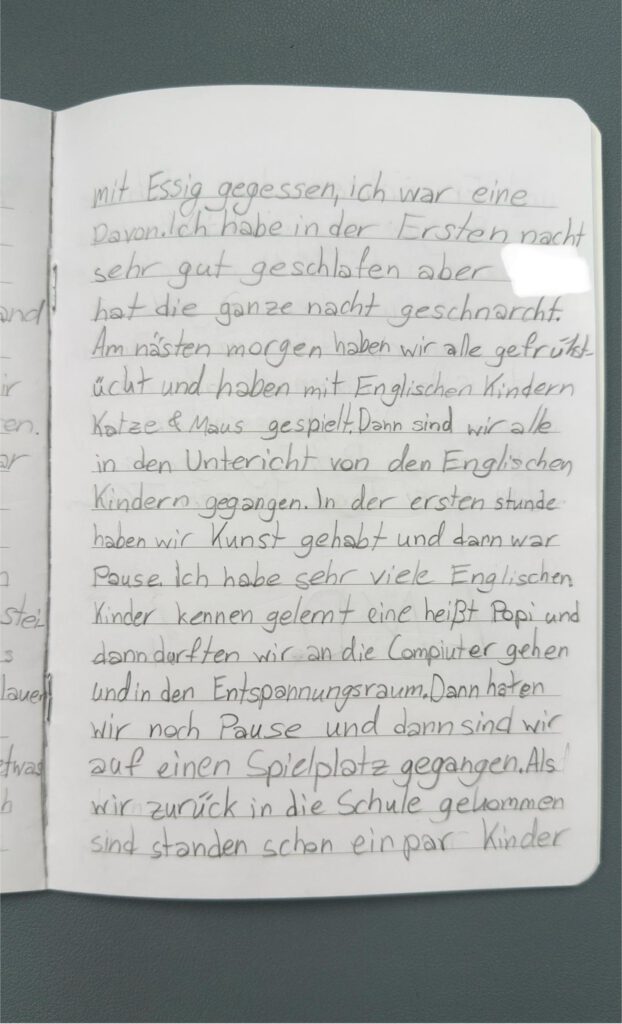 mit Essig gegessen, ich war eine
Davon. Ich habe in der Ersten nacht
sehr gut geschlafen aber
hat die ganze nacht geschnarcht.
Am nästen morgen haben wir alle gefrühst
ückt und haben mit Englischen Kindern
Katze & Maus gespielt. Dann sind wir alle
in den Untericht von den Englischen
Kindern gegangen. In der ersten stunde
haben wir Kunst gehabt und dann war
Pause. Ich habe sehr viele Englischen
Kinder kennen gelernt eine heißt Popi und
dann durften wir an die Compiuter gehen
und in den Entspannungsraum. Dann haten
wir noch Pause und dann sind wir
auf einen Spielplatz gegangen. Als
wir zurück in die Schule gekommen
sind standen schon ein par Kinder
and
ir
en.
ar
n
stei-
s
lauen
etwas
h